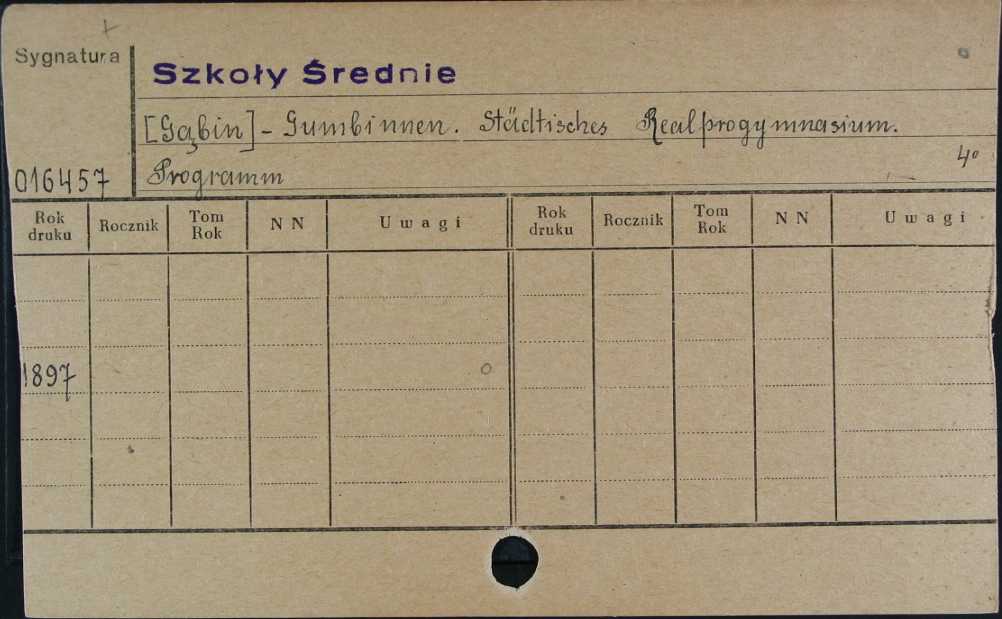 Sygnatura
Szkoły Średnie
[Gąbin] - Gumbinnen. Städtisches Realprogymnasium.
4°
016457
Programm
Rok druku Rocznik Tom Rok N N Uwagi Rok druku Rocznik Tom Rok N N Uwagi
1897